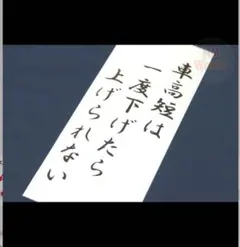 車高短は
一度下げたら
上げられない